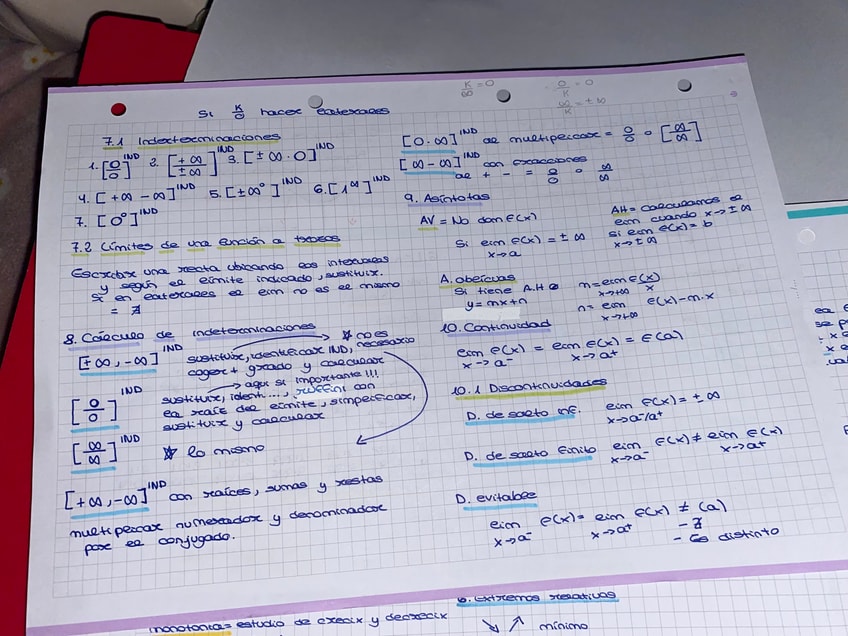 K/∞ = 0
0/K = 0
∞/K = ± ∞
Si K/0 hacer laterales
7.1 Indeterminaciones
1. [0/0]IND 2. [+∞/±∞]IND 3. [±∞·0]IND
4. [+∞ -∞]IND 5. [±∞⁰]IND 6. [1^∞]IND
7. [0⁰]IND
7.2 Límites de una función a trozos
Escribir una recta ubicando los intervalos
y según el límite indicado, sustituir.
Si en laterales el lim no es el mismo
= ∄
8. Cálculo de indeterminaciones
[±∞,-∞]IND sustituir, identificar IND, → * no es necesario
coger + grado y calcular
→ aqui si importante!!!
[0/0]IND sustituir, identi..., ruffini con
la raíz del límite, simplificar,
sustituir y calcular
[∞/∞]IND * lo mismo
[+∞,-∞]IND con raíces, sumas y restas
multiplicar numerador y denominador
por el conjugado.
[0·∞]IND al multiplicar = 0/0 o [∞/∞]
[∞-∞]IND con fracciones
al + - = 0/0 o ∞/∞
9. Asíntotas
AV = No dom f(x)
Si lim f(x) = ±∞
x→a
AH = Calculamos el
lim cuando x→±∞
si lim f(x) = b
x→±∞
A. oblicuas
Si tiene A.H
y = mx+n
m = lim f(x)/x
x→+∞
n = lim f(x)-m·x
x→+∞
10. Continuidad
lim f(x) = lim f(x) = f(a)
x→a⁻ x→a⁺
10.1 Discontinuidades
D. de salto inf. lim f(x) = ±∞
x→a⁻/a⁺
D. de salto finito lim f(x) ≠ lim f(x)
x→a⁻ x→a⁺
D. evitable
lim f(x) = lim f(x) ≠ (a)
x→a⁻ x→a⁺ - ∄
- Es distinto
monotonía = estudio de crecix y decrecix
6. Extremos relativos
↘ ↗ mínimo